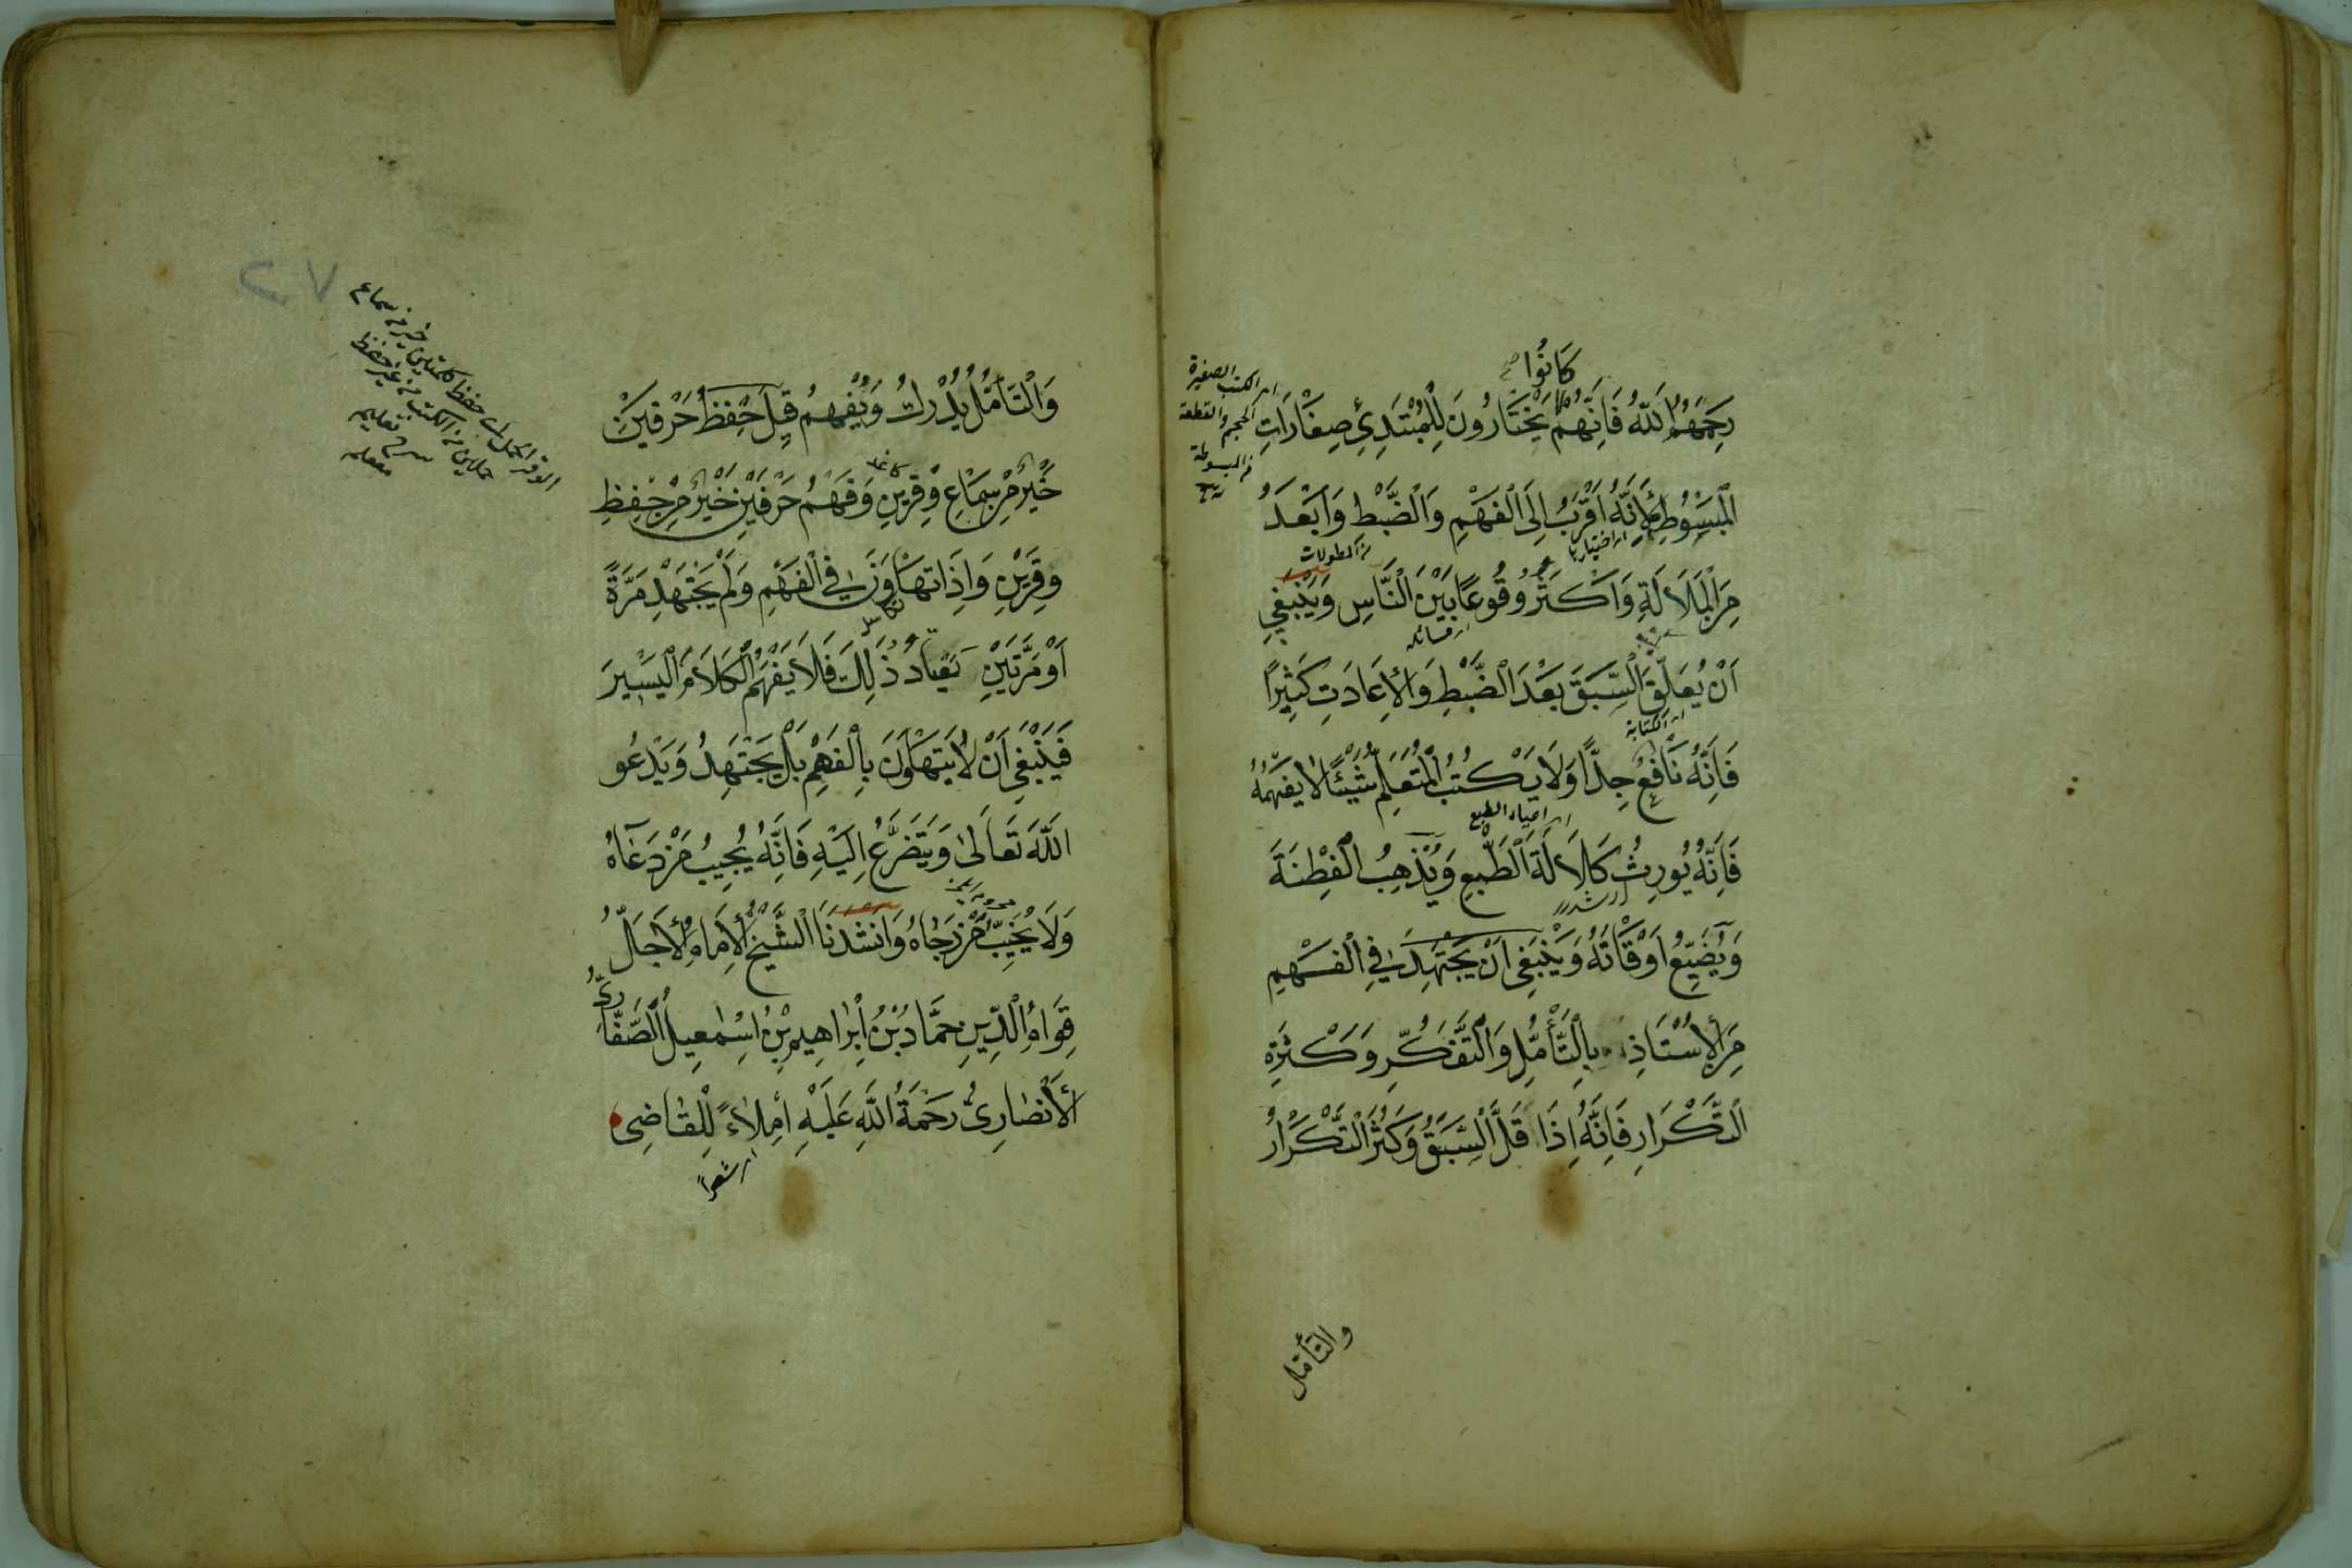 كَانُوا
رَحِمَهُمُ اللّٰهُ فَاِنَّهُمْ يَخْتَارُونَ لِلْمُبْتَدِئِ صِغَارَاتِ
اى الكتب الصغيرة
الحجم والقطعة
الْمَبْسُوطِ لِاَنَّهُ اَقْرَبُ اِلَى الْفَهْمِ وَالضَّبْطِ وَاَبْعَدُ
من المطولات
مِنَ الْمَلَالَةِ وَاَكْثَرُ وُقُوعًا بَيْنَ النَّاسِ وَيَنْبَغِي
اَنْ يُعَلِّقَ السَّبَقَ بَعْدَ الضَّبْطِ وَالْاِعَادَتِ كَثِيرًا
اى الكتابة
فَاِنَّهُ نَافِعٌ جِدًّا وَلَا يَكْتُبُ الْمُتَعَلِّمُ شَيْئًا لَا يَفْهَمُهُ
فَاِنَّهُ يُورِثُ كَلَالَةَ الطَّبْعِ وَيُذْهِبُ الْفِطْنَةَ
وَيُضَيِّعُ اَوْقَاتَهُ وَيَنْبَغِي اَنْ يَجْتَهِدَ فِي الْفَهْمِ
مِنَ الْاُسْتَاذِ بِالتَّأَمُّلِ وَالتَّفَكُّرِ وَكَثْرَةِ
التَّكْرَارِ فَاِنَّهُ اِذَا قَلَّ السَّبَقُ وَكَثُرَ التَّكْرَارُ
والتأمل
٢٧
وَالتَّأَمُّلُ يُدْرَكُ وَيُفْهَمُ قِيلَ حِفْظُ حَرْفَيْنِ
خَيْرٌ مِنْ سَمَاعِ وِقْرَيْنِ وَفَهْمُ حَرْفَيْنِ خَيْرٌ مِنْ حِفْظِ
وِقْرَيْنِ وَاِذَا تَهَاوَنَ فِي الْفَهْمِ وَلَمْ يَجْتَهِدْ مَرَّةً
اَوْ مَرَّتَيْنِ يَعْتَادُ ذٰلِكَ فَلَا يَفْهَمُ الْكَلَامَ الْيَسِيرَ
فَيَنْبَغِي اَنْ لَا يَتَهَاوَنَ بِالْفَهْمِ بَلْ يَجْتَهِدُ وَيَدْعُو
اللّٰهَ تَعَالٰى وَيَتَضَرَّعُ اِلَيْهِ فَاِنَّهُ يُجِيبُ مَنْ دَعَاهُ
وَلَا يُخَيِّبُ مَنْ رَجَاهُ وَاَنْشَدَنَا الشَّيْخُ الْاِمَامُ الْاَجَلُّ
قِوَامُ الدِّينِ حَمَّادُ بْنُ اِبْرَاهِيمَ بْنِ اِسْمٰعِيلَ الصَّفَّارِيُّ
الْاَنْصَارِيُّ رَحْمَةُ اللّٰهِ عَلَيْهِ اِمْلَاءً لِلْقَاضِي
اى شعرا